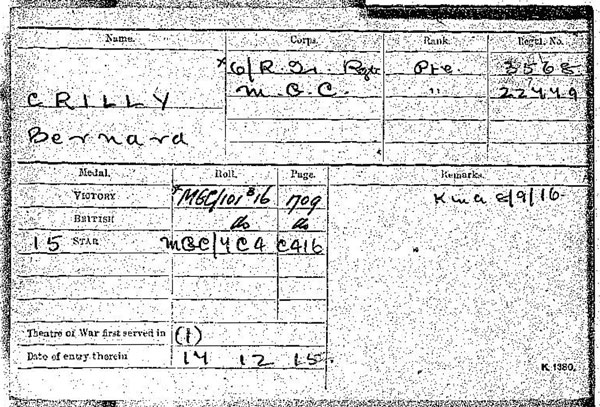 Name. Corps. Rank. Regtl. No.
CRILLY x6/R. Ir. Regt Pte. 3568
Bernard M.G.C. " 22449
Medal. Roll. Page. Remarks.
VICTORY x MGC/101 B 16 1709 K in a 8/9/16
BRITISH do do
15 STAR MGC/4C4 C416
Theatre of War first served in (1)
Date of entry therein 14 12 15.
K. 1380.